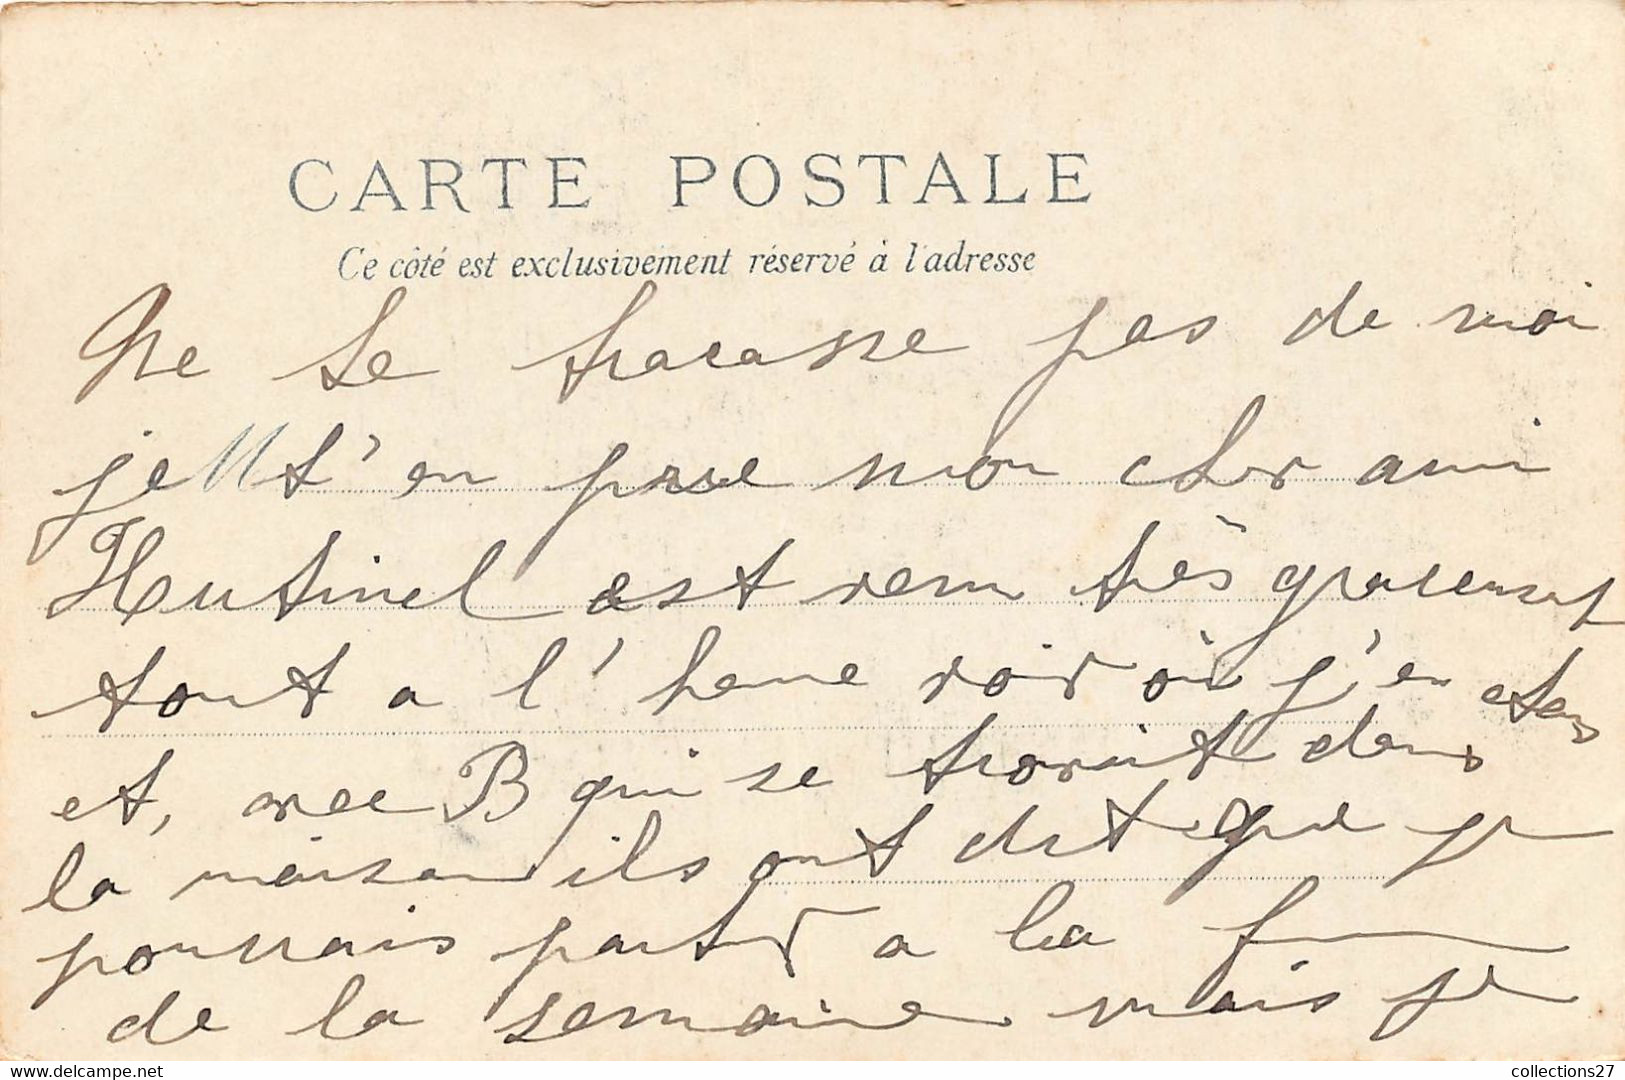 CARTE POSTALE
Ce côté est exclusivement réservé à l'adresse
Ne te fracasse pas de moi
je t'en prie mon cher ami
Hutinel est venu très gracieuset
tout a l'heure voir où j'en etais
et, avec B qui se trouvait dans
la maison ils ont dit que je
pourrais partir a la fin
de la semaine mais je
www.delcampe.net
collections27